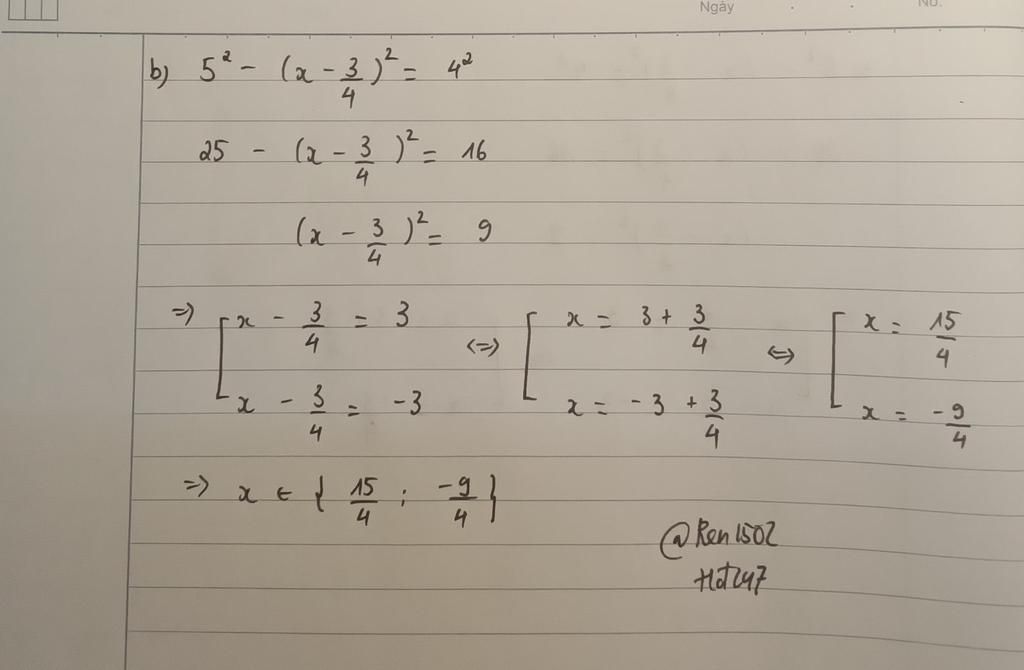 Ngày No.
b) 5² - (x - 3/4)² = 4²
25 - (x - 3/4)² = 16
(x - 3/4)² = 9
=> [ x - 3/4 = 3 <=> [ x = 3 + 3/4 <=> [ x = 15/4
x - 3/4 = -3 x = -3 + 3/4 x = -9/4
=> x ∈ { 15/4 ; -9/4 }
@Ren1502